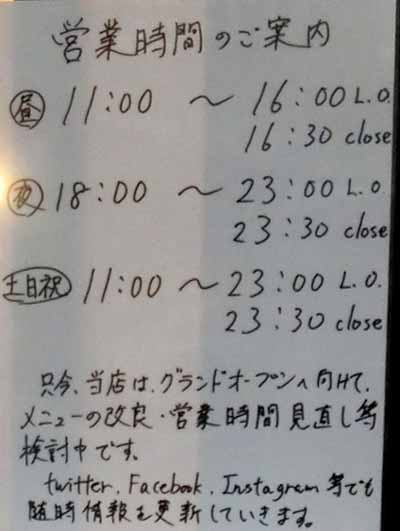 営業時間のご案内
昼 11:00 〜 16:00 L.O.
16:30 close
夜 18:00 〜 23:00 L.O.
23:30 close
土日祝 11:00 〜 23:00 L.O.
23:30 close
只今、当店は、グランドオープンへ向けて、
メニューの改良・営業時間見直し等
検討中です。
twitter、Facebook、Instagram等でも
随時情報を更新していきます。